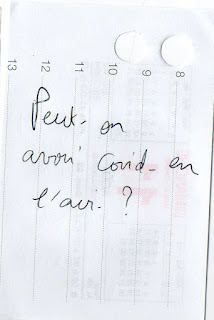 8
9
10
11
12
13
Peut-on
avoir Covid-en
l'air. ?